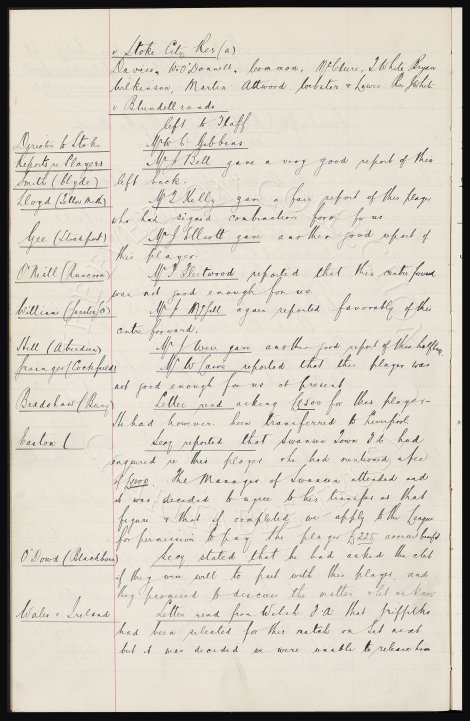 v Stoke City Res (a)
Davies, W O'Donnell, Common, McClure, J White, Bryan
Wilkinson, Martin Attwood. Webster & Lewis Res J White
v Blundellsands
left to Staff
Director to Stoke Mr W C Gibbins
Reports re Players Mr J Bell gave a very good report of this
Smith (Clyde) left back.
Lloyd (Mold) Mr J Kelly gave a fair report of this player
who had signed contraction form for us
Gee (Stockport) Mr J Elliott gave another good report of
this player.
O'Neill (Runcorn) Mr J Fleetwood reported that this centre forward
was not good enough for us
William (Preston a) Mr J again reported favorably of this
centre forward.
Hill (Aberdeen) Mr J Weir gave another good report of this halfback
Grainger (Cockfield) Mr W Caine reported that this player was
not good enough for us at present
Bradshaw (Bury) Letter read asking £8500 for this player.
He had however been transferred to Liverpool.
Easton C Secy reported that Swansea Town F.C. had
enquired re this player & he had mentioned a fee
of £3000. The Manager of Swansea attended and
it was decided to agree to his transfer at that
figure & that if completed we apply to the League
for permission to pay the player £225 accrued benefit
O'Dowd (Blackburn) Secy stated that he had asked the club
if they were will to part with this player. and
they promised to discuss the matter & let us know
Wales v Ireland Letter read from Welsh F.A that Griffiths
had been selected for this match on Sat next
but it was decided we were unable to release him